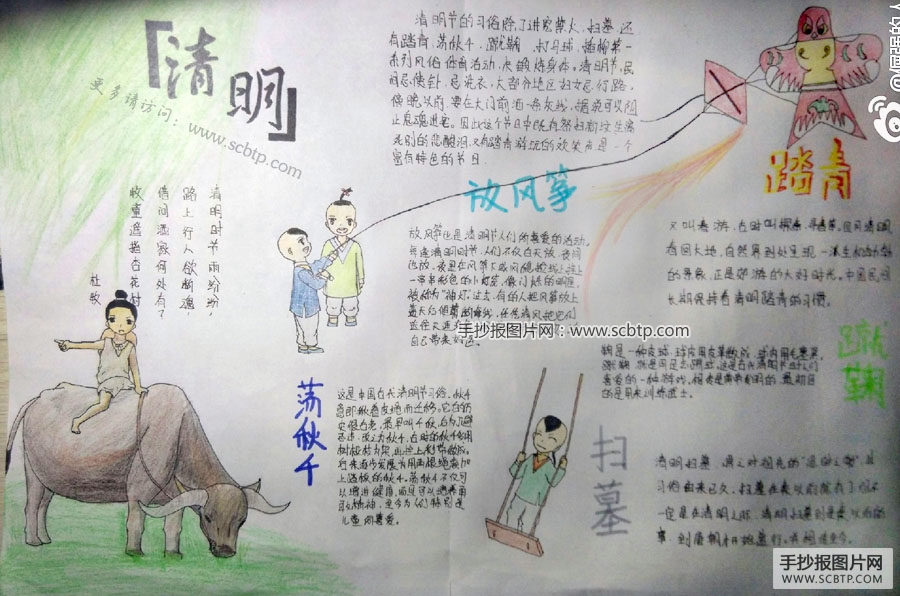 「清明」
更多请访问：www.scbtp.com
清明节的习俗除了讲究禁火、扫墓，还
有踏青、荡秋千、蹴鞠、打马球、插柳等一
系列风俗体育活动，
清明节，民
间忌使针，忌洗衣，大部分地区妇女忌行路。
傍晚以前，要在大门前洒一条灰线，据说可以阻
止鬼魂进宅。因此这个节日中既有祭扫新坟生离
死别的悲酸泪，又有踏青游玩的欢笑声，是一个
富有特色的节日.
清明时节雨纷纷，
路上行人欲断魂，
借问酒家何处有？
牧童遥指杏花村
杜牧
放风筝
放风筝也是清明节人们所喜爱的活动。
每逢清明时节，人们不仅白天放，夜间
也放，夜里在风筝下或风稳拉线上挂上
一串串彩色的小灯笼，像闪烁的明星，
被称为"神灯"。过去，有的人把风筝放上
蓝天后，
自己带来好运。
手抄报图片网：www.scbtp.com
踏青
又叫春游，古时叫探春、寻春等，四月清明，
春回大地，自然界到处呈现一派生机勃勃
的景象，正是郊游的大好时光。中国民间
长期保持着清明踏青的习惯。
蹴鞠
鞠是一种皮球，球皮用皮革做成，球内用毛塞紧。
蹴鞠，就是用足去踢球，这是古代清明节时人们
喜爱的一种游戏。相传是黄帝发明的，最初目
的是用来训练武士。
荡秋千
这是中国古代清明节习俗，秋千
意即揪着皮绳而迁移。它的历
史很古老，最早叫千秋，后为了避
忌讳，改之为秋千。古时的秋千多用
树桠枝为架，再拴上彩带做成。
后来逐步发展为用两根绳索加
上踏板的秋千。荡秋千不仅可
以增进健康，而且可以培养勇
敢精神，至今为人们特别是
儿童所喜爱。
扫墓
清明扫墓，谓之对祖先的"思时之敬"，其
习俗由来已久。
一定是在清明之际，清明扫墓则是秦以后的
事，到唐朝
手抄报图片网
WWW.SCBTP.COM